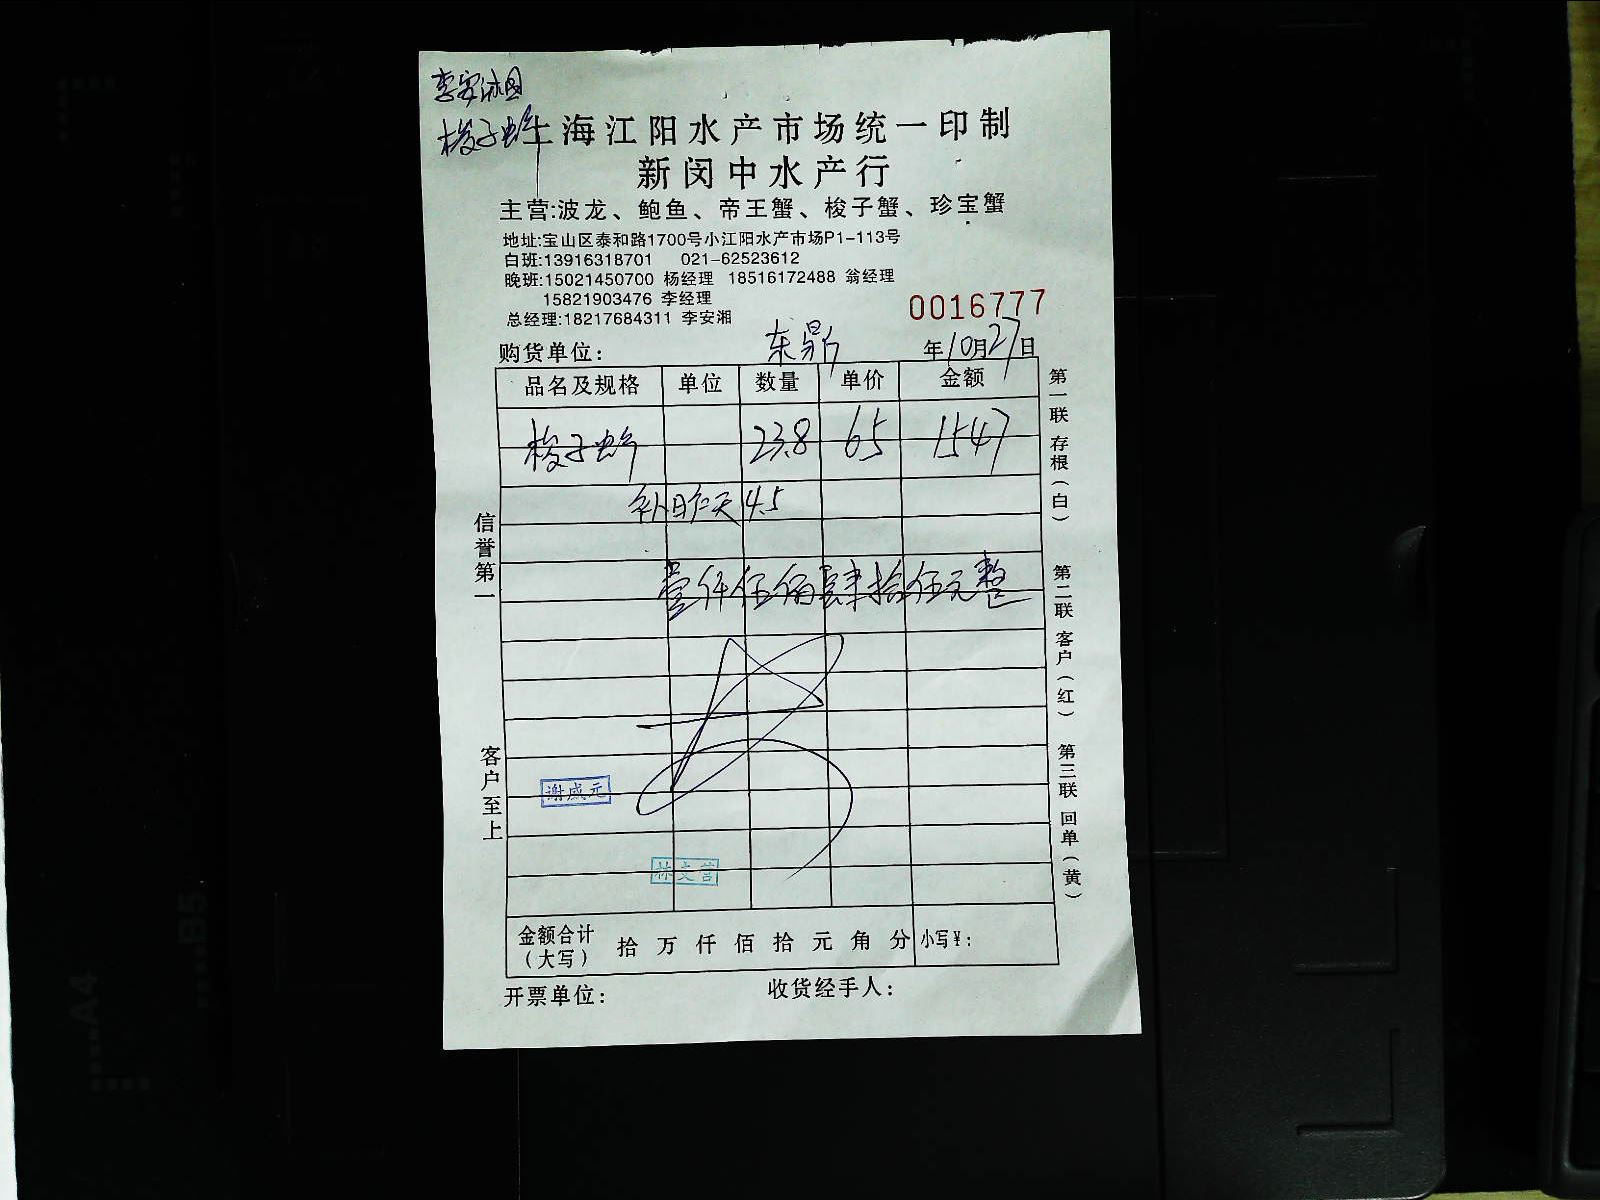 李安湘
梭子蟹
上海江阳水产市场统一印制
新闵中水产行
主营:波龙、鲍鱼、帝王蟹、梭子蟹、珍宝蟹
地址:宝山区泰和路1700号小江阳水产市场P1-113号
白班:13916318701 021-62523612
晚班:15021450700 杨经理 18516172488 翁经理
15821903476 李经理
总经理:18217684311 李安湘
0016777
购货单位: 东鼎 年10月27日
品名及规格 单位 数量 单价 金额
梭子蟹 23.8 65 1547
补昨天 4.5
壹仟伍佰肆拾伍元整
信誉第一
客户至上
第一联 存根(白)
第二联 客户(红)
第三联 回单(黄)
谢成元
林文营
金额合计(大写) 拾 万 仟 佰 拾 元 角 分 小写¥:
开票单位: 收货经手人:
B5
A4